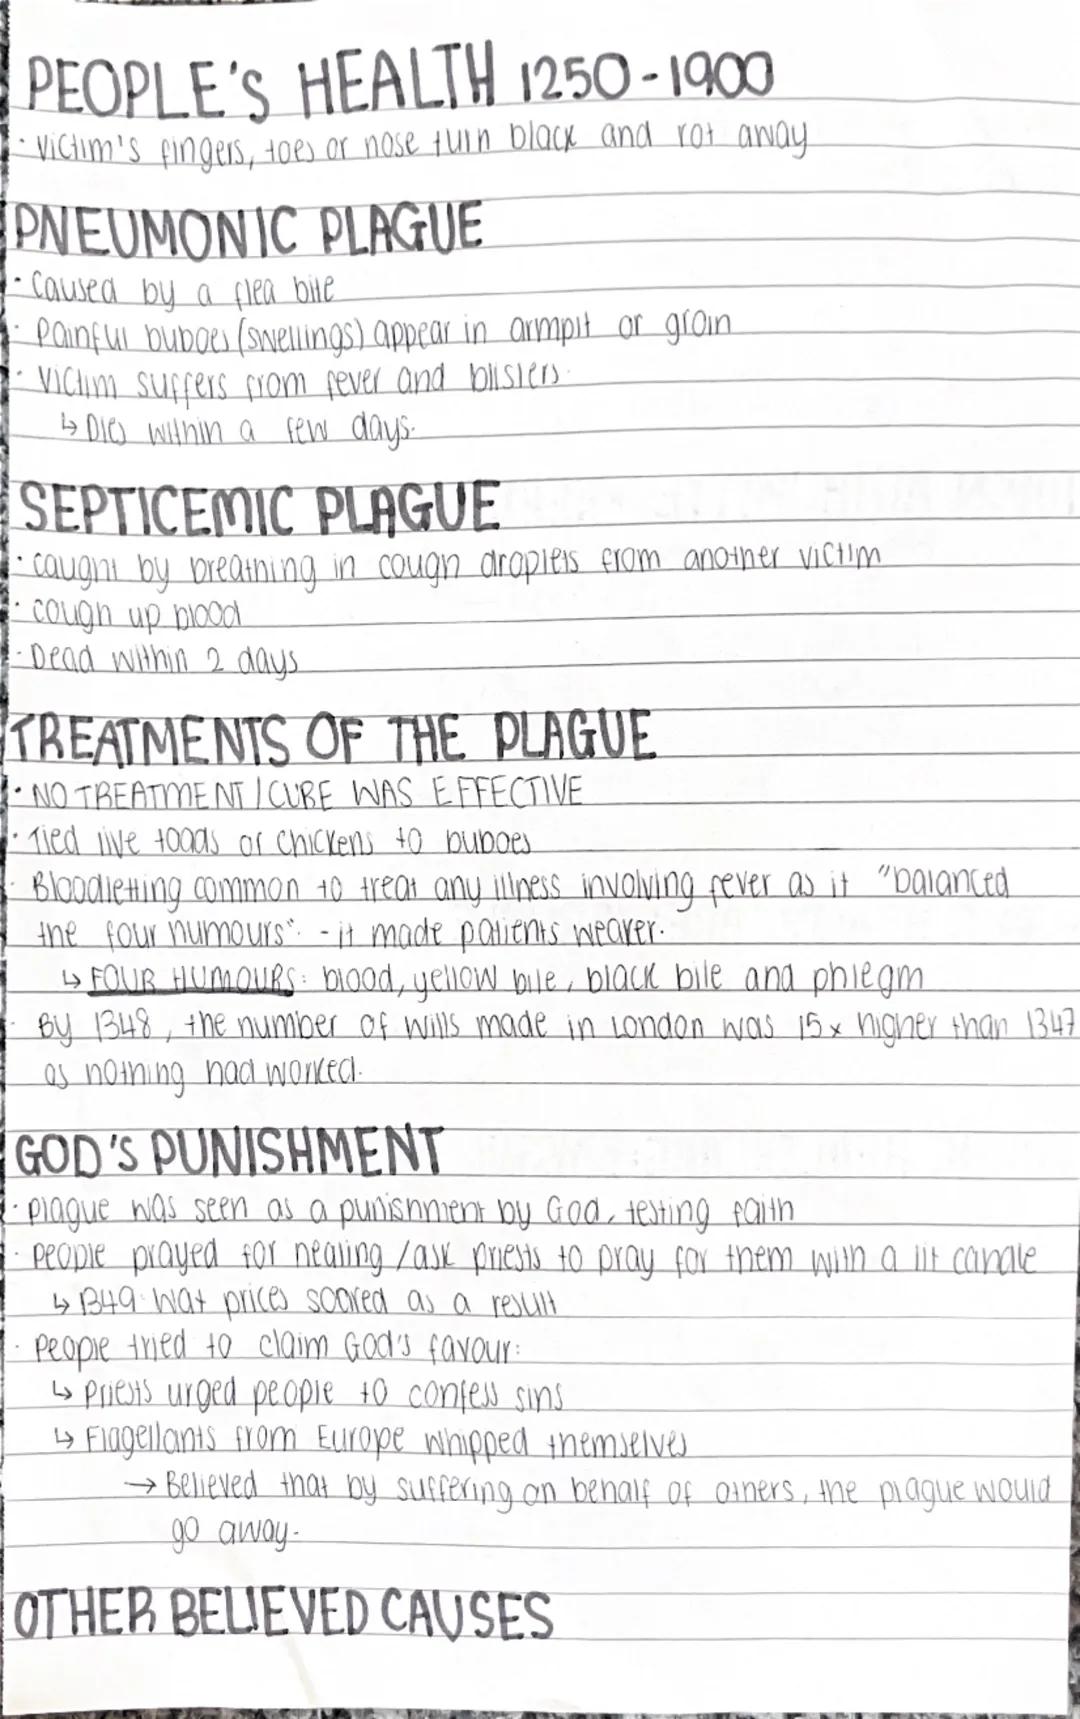 PEOPLE'S HEALTH 1250-1900
· Victim's fingers, toes or nose turn black and rot away
PNEUMONIC PLAGUE
· Caused by a flea bite
· Painful buboes (swellings) appear in armpit or groin
· Victim suffers from fever and blisters.
↳ Dies within a few days.
SEPTICEMIC PLAGUE
· caught by breathing in cough droplets from another victim
· cough up blood
· Dead within 2 days
TREATMENTS OF THE PLAGUE
· NO TREATMENT / CURE WAS EFFECTIVE
· Tied live toads or chickens to buboes
· Bloodletting common to treat any illness involving fever as it "balanced
the four humours". - it made patients weaker.
↳ FOUR HUMOURS: blood, yellow bile, black bile and phlegm
· By 1348, the number of wills made in London was 15x higher than 1347
as nothing had worked.
GOD'S PUNISHMENT
· plague was seen as a punishment by God, testing faith
· People prayed for healing / ask priests to pray for them with a lit candle
↳ 1349: wax prices soared as a result
· People tried to claim God's favour:
↳ Priests urged people to confess sins
↳ Flagellants from Europe whipped themselves
→ Believed that by suffering on behalf of others, the plague would
go away.
OTHER BELIEVED CAUSES